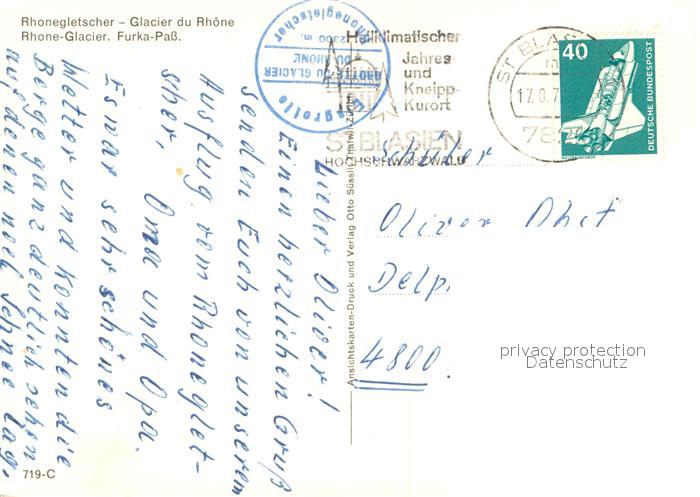 Rhonegletscher – Glacier du Rhône
Rhone-Glacier. Furka-Paß.
Lieber Oliver!
Einen herzlichen Gruß
senden Euch von unserem
Ausflug vom Rhoneglet-
scher, Oma und Opa.
Es war sehr schönes
Wetter und konnten die
Berge ganz deutlich sehen
auf denen noch Schnee lag.
719-C
Ansichtskarten-Druck und Verlag Otto Süssli
Eisgrotte
Rhonegletscher
2300 m.
GROTTE DU GLACIER
DU RHONE
Heilklimatischer
Jahres-
und
Kneipp-
Kurort
ST. BLASIEN
HOCHSCHWARZWALD
ST BLAS
17.8.7
782
40
DEUTSCHE BUNDESPOST
Schüler
Oliver
4800
privacy protection
Datenschutz